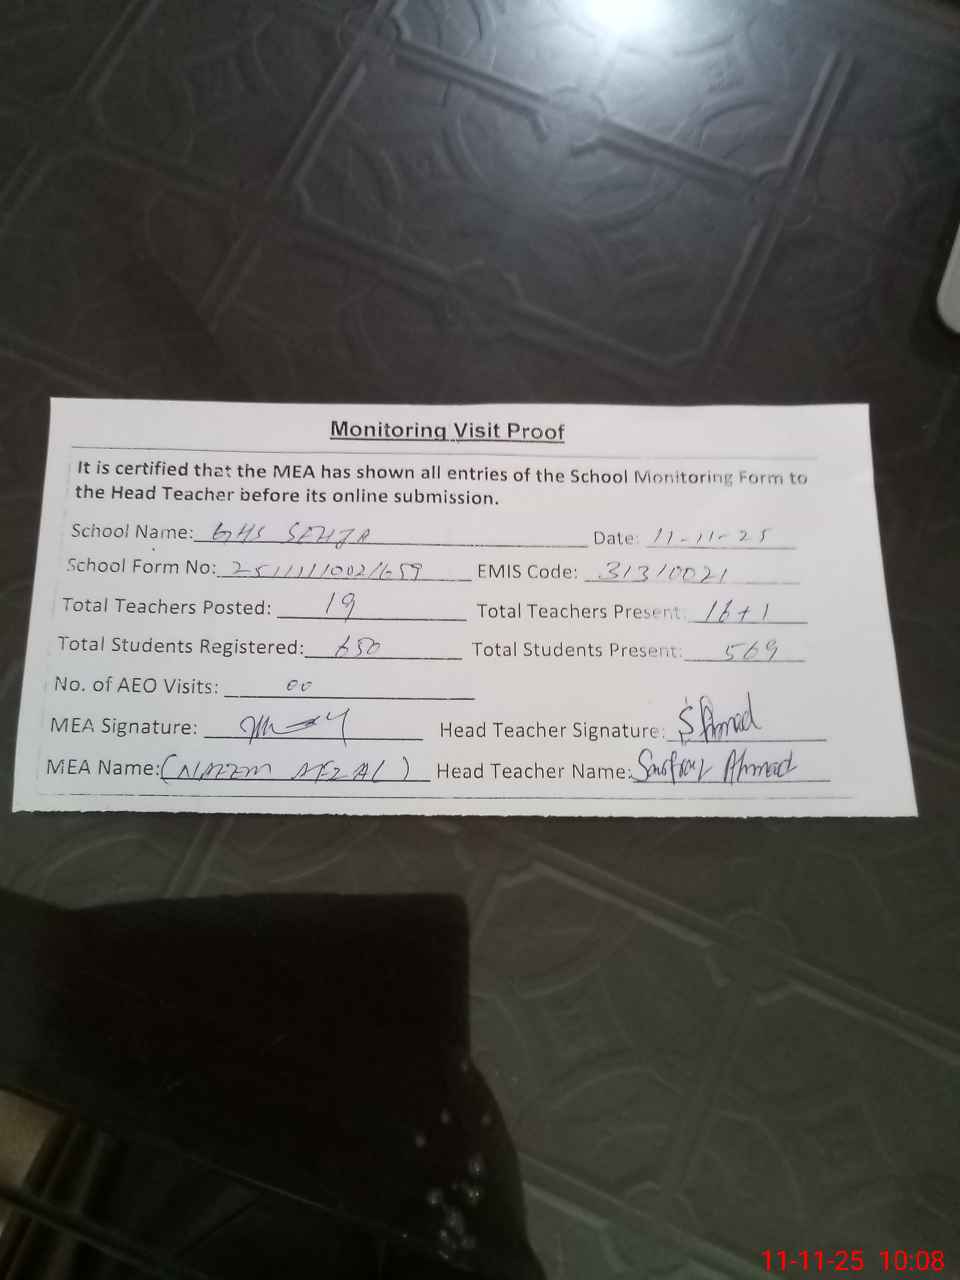 Monitoring Visit Proof
It is certified that the MEA has shown all entries of the School Monitoring Form to
the Head Teacher before its online submission.
School Name: GHS SEHJA Date: 11-11-25
School Form No: EMIS Code: 31310021
Total Teachers Posted: 19 Total Teachers Present: 16+1
Total Students Registered: 650 Total Students Present: 569
No. of AEO Visits: 00
MEA Signature: Head Teacher Signature: S Ahmad
MEA Name: (NAEEM AFZAL) Head Teacher Name: Ahmad
11-11-25 10:08